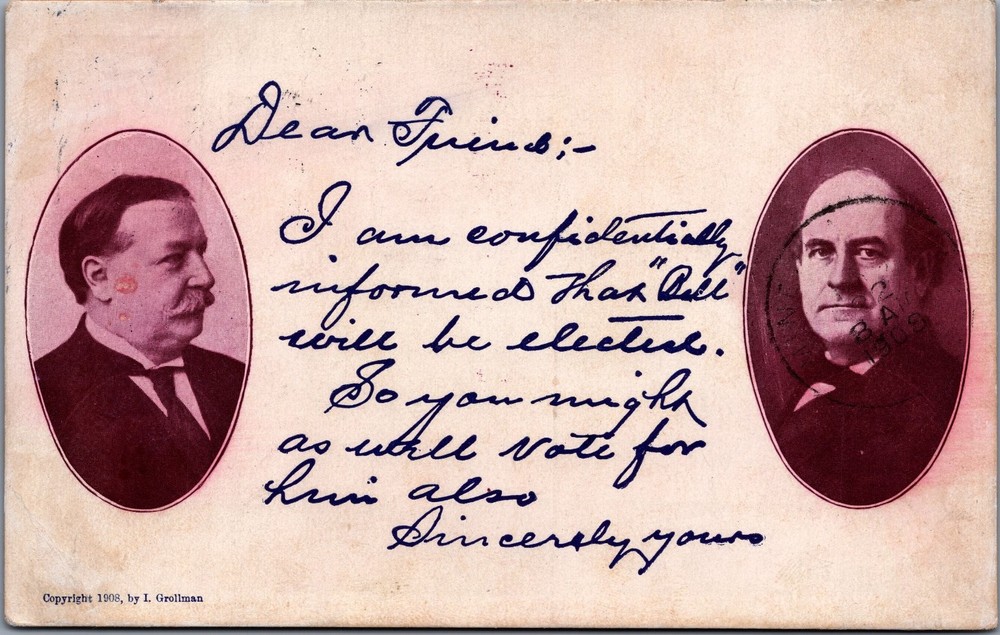 Dear Friend:-
I am confidentially
informed that "Bill"
will be elected.
So you might
as well vote for
him also
Sincerely yours
Copyright 1908, by I. Grollman